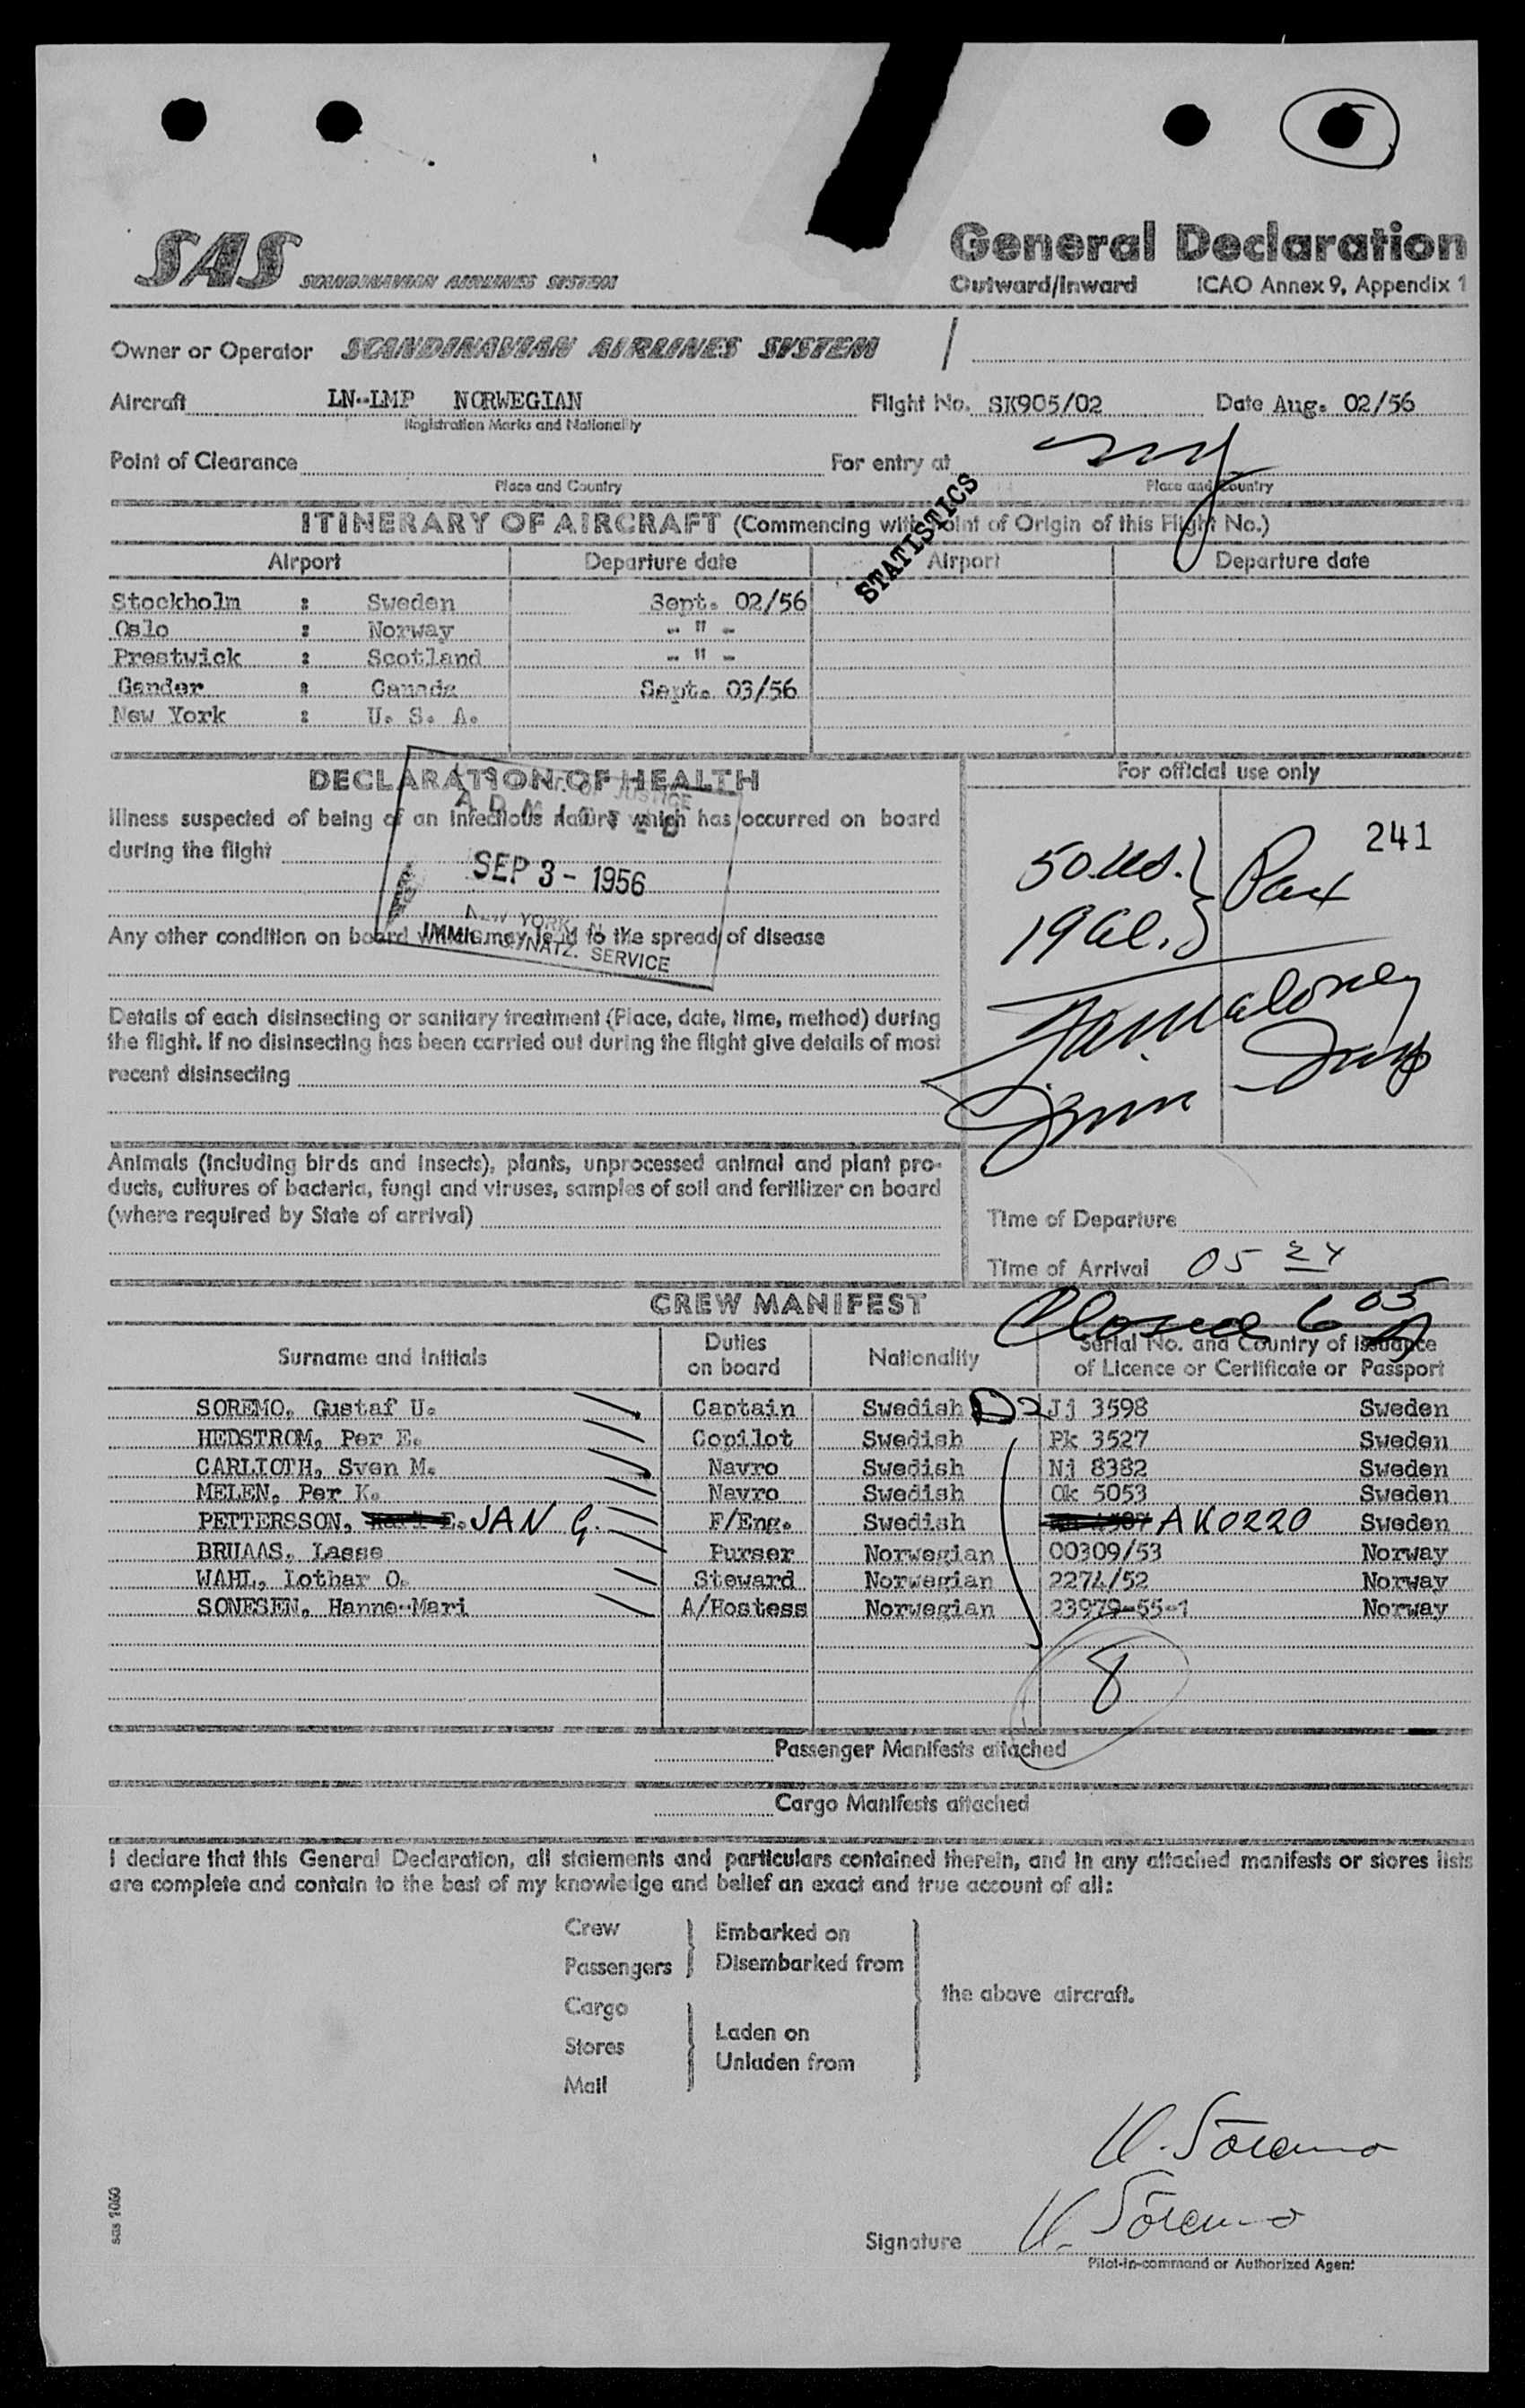 SAS SCANDINAVIAN AIRLINES SYSTEM
General Declaration
Outward/Inward ICAO Annex 9, Appendix 1
Owner or Operator SCANDINAVIAN AIRLINES SYSTEM /
Aircraft LN-LMP NORWEGIAN Flight No. SK905/02 Date Aug. 02/56
Registration Marks and Nationality
Point of Clearance For entry at NY
Place and Country Place and Country
STATISTICS
ITINERARY OF AIRCRAFT (Commencing with Point of Origin of this Flight No.)
Airport Departure date Airport Departure date
Stockholm : Sweden Sept. 02/56
Oslo : Norway - " -
Prestwick : Scotland - " -
Gander : Canada Sept. 03/56
New York : U. S. A.
DECLARATION OF HEALTH
Illness suspected of being of an infectious nature which has occurred on board
during the flight
Any other condition on board which may lead to the spread of disease
Details of each disinsecting or sanitary treatment (Place, date, time, method) during
the flight. If no disinsecting has been carried out during the flight give details of most
recent disinsecting
JUSTICE
ADMITTED
SEP 3 - 1956
NEW YORK, N. Y.
IMMIG. & NATZ. SERVICE
For official use only
241
50 US.} Pax
19 al.}
Maloney
Imm Insp
Animals (including birds and insects), plants, unprocessed animal and plant pro-
ducts, cultures of bacteria, fungi and viruses, samples of soil and fertilizer on board
(where required by State of arrival)
Time of Departure
Time of Arrival 05 24
CREW MANIFEST
Closed 6 03
Surname and Initials Duties on board Nationality Serial No. and Country of Issuance of Licence or Certificate or Passport
SOREMO, Gustaf U. Captain Swedish D2 Jj 3598 Sweden
HEDSTROM, Per E. Copilot Swedish Pk 3527 Sweden
CARLIOTH, Sven M. Navro Swedish Nj 8382 Sweden
MELEN, Per K. Navro Swedish Ok 5053 Sweden
PETTERSSON, JAN G. F/Eng. Swedish AK0220 Sweden
BRUAAS, Lasse Purser Norwegian 00309/53 Norway
WAHL, Lothar O. Steward Norwegian 2274/52 Norway
SONESEN, Hanne-Mari A/Hostess Norwegian 23979-55-1 Norway
8
Passenger Manifests attached
Cargo Manifests attached
I declare that this General Declaration, all statements and particulars contained therein, and in any attached manifests or stores lists
are complete and contain to the best of my knowledge and belief an exact and true account of all:
Crew
Passengers
Embarked on
Disembarked from
Cargo
Stores
Mail
Laden on
Unladen from
the above aircraft.
U. Söremo
Signature U. Söremo
Pilot-in-command or Authorized Agent
sas 1060